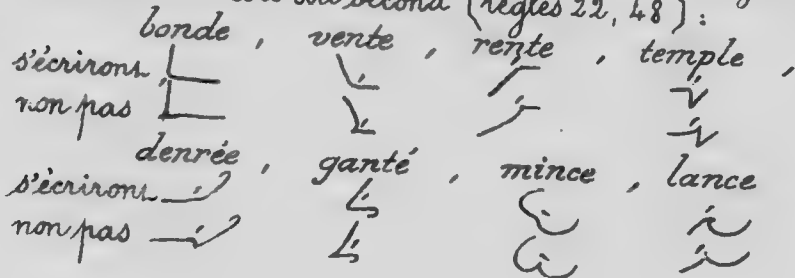 second (règles 22, 48) :
bonde, vente, rente, temple,
s'écriront
non pas
denrée, ganté, mince, lance
s'écriront
non pas